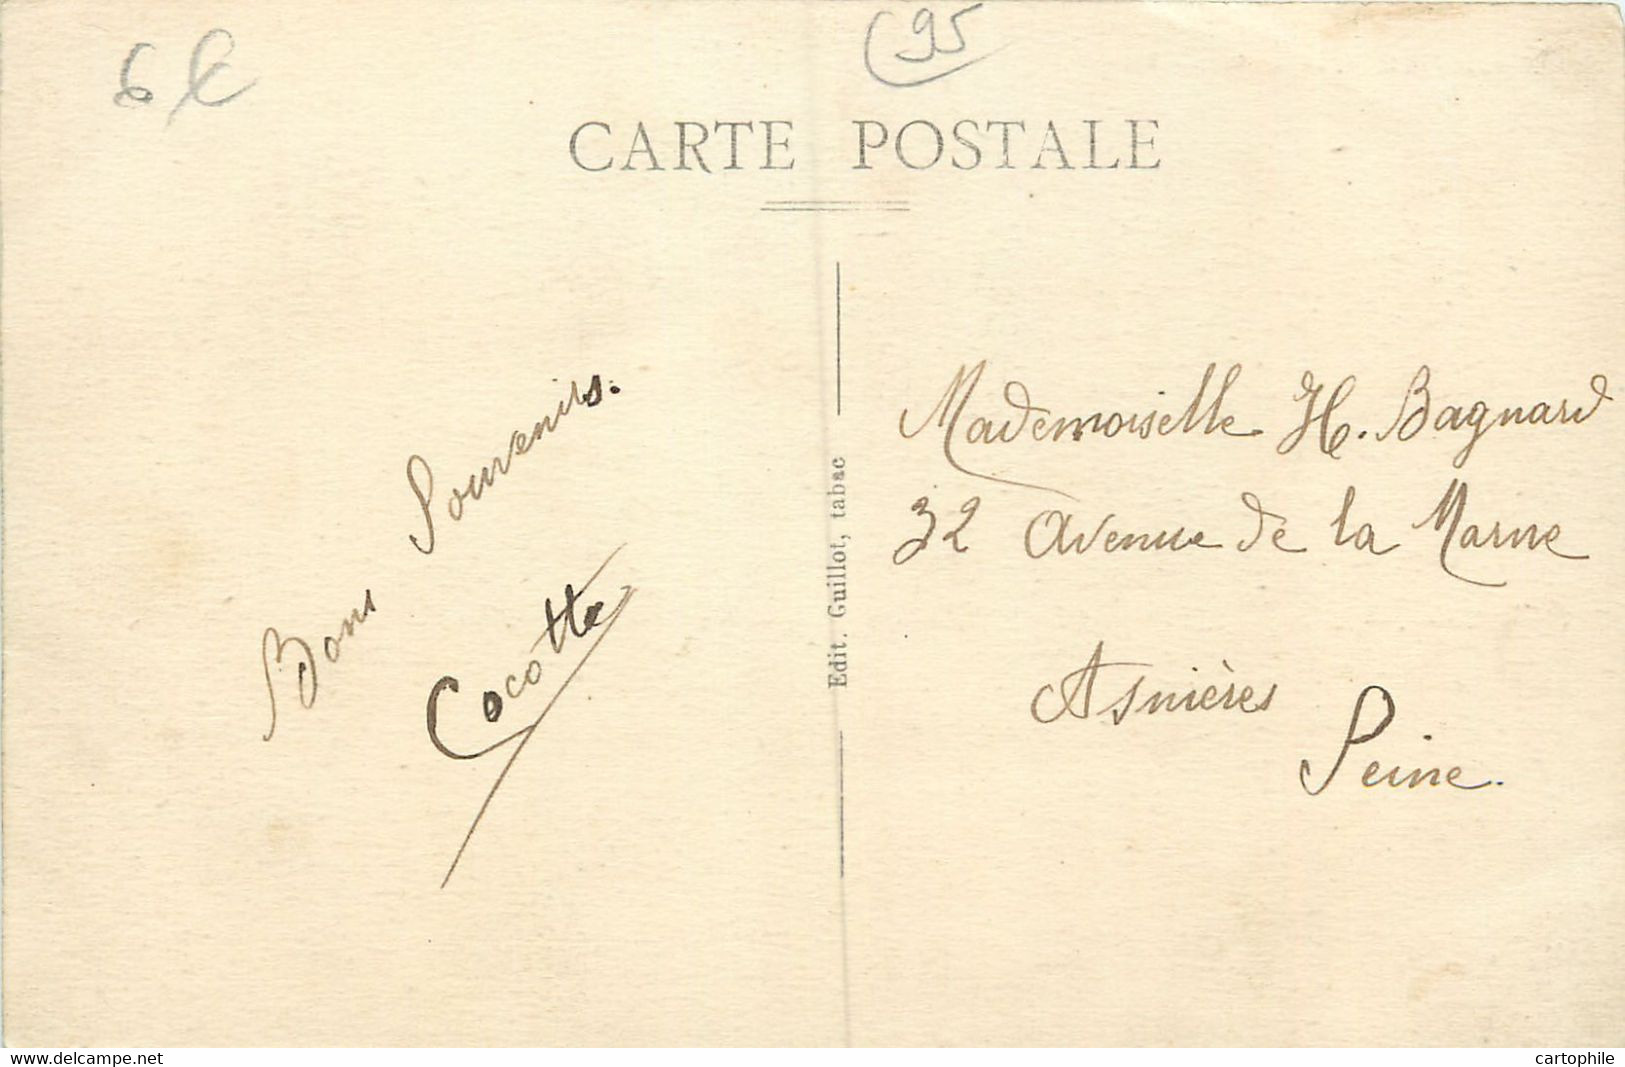 6€
95
CARTE POSTALE
Bons Souvenirs.
Cocotte
Edit. Guillot, tabac
Mademoiselle H. Bagnard
32 Avenue de la Marne
Asnières
Seine.
www.delcampe.net
cartophile